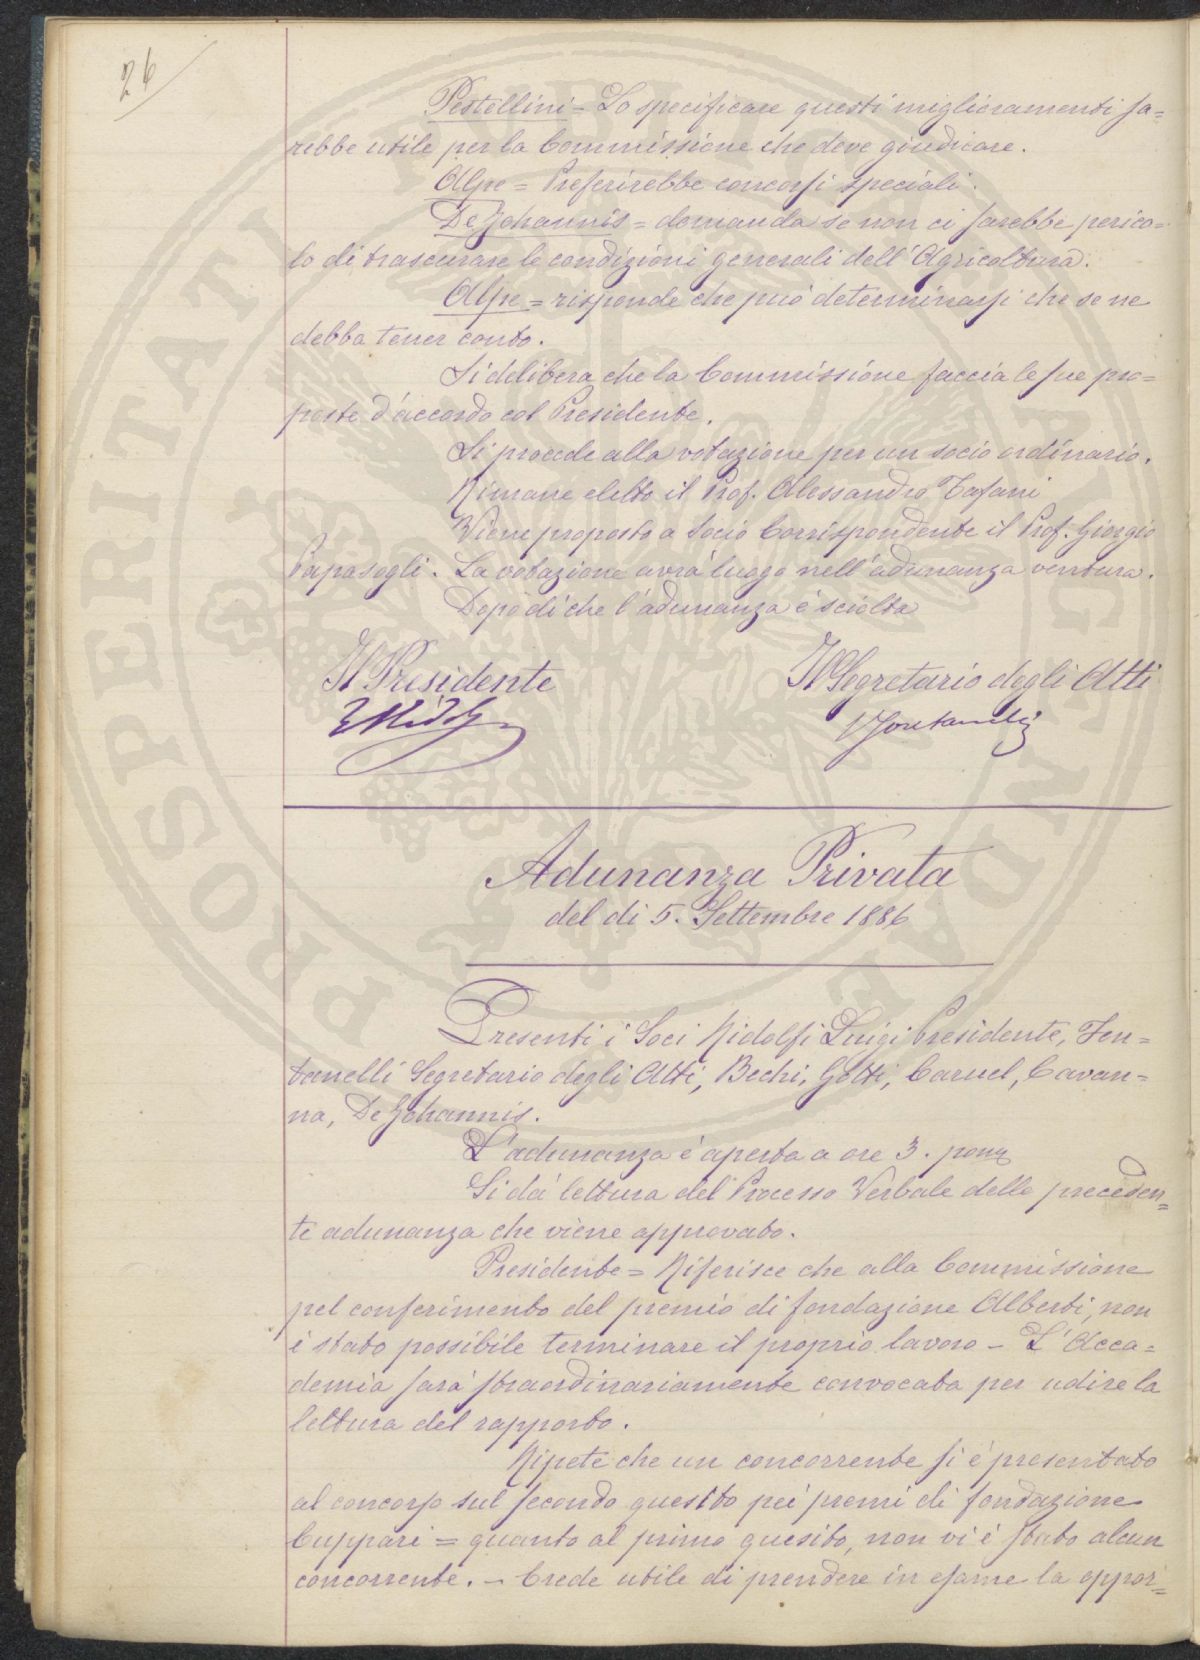 26
Pestellini = Lo specificare questi miglioramenti sa=
rebbe utile per la Commissione che deve giudicare.
Alpe = Preferirebbe concorsi speciali.
De Johannis = domanda se non ci sarebbe perico=
lo di trascurare le condizioni generali dell'Agricoltura.
Alpe = risponde che può determinarsi che se ne
debba tener conto.
Si delibera che la Commissione faccia le sue pro=
poste d'accordo col Presidente.
Si procede alla votazione per un socio ordinario.
Rimane eletto il Prof. Alessandro Tafani
Viene proposto a Socio Corrispondente il Prof. Giorgio
Papasogli. La votazione avrà luogo nell'adunanza ventura.
Dopo di che l'adunanza è sciolta
Il Presidente
Il Segretario degli Atti
LRidolfi
Fontanelli
Adunanza Privata
del di 5. Settembre 1886
Presenti i Soci Ridolfi Luigi Presidente, Fon=
tanelli Segretario degli Atti, Bechi, Gotti, Caruel, Cavan=
na, De Johannis.
L'adunanza è aperta a ore 3. pom
Si dà lettura del Processo Verbale della preceden=
te adunanza che viene approvato.
Presidente = Riferisce che alla Commissione
pel conferimento del premio di fondazione Alberti, non
è stato possibile terminare il proprio lavoro - L'Acca=
demia sarà straordinariamente convocata per udire la
lettura del rapporto.
Ripete che un concorrente si è presentato
al concorso sul secondo quesito pei premi di fondazione
Cuppari = quanto al primo quesito, non vi è stato alcun
concorrente. - Crede utile di prendere in esame la oppor=
PROSPERITATI PUBLICAE AUGENDAE